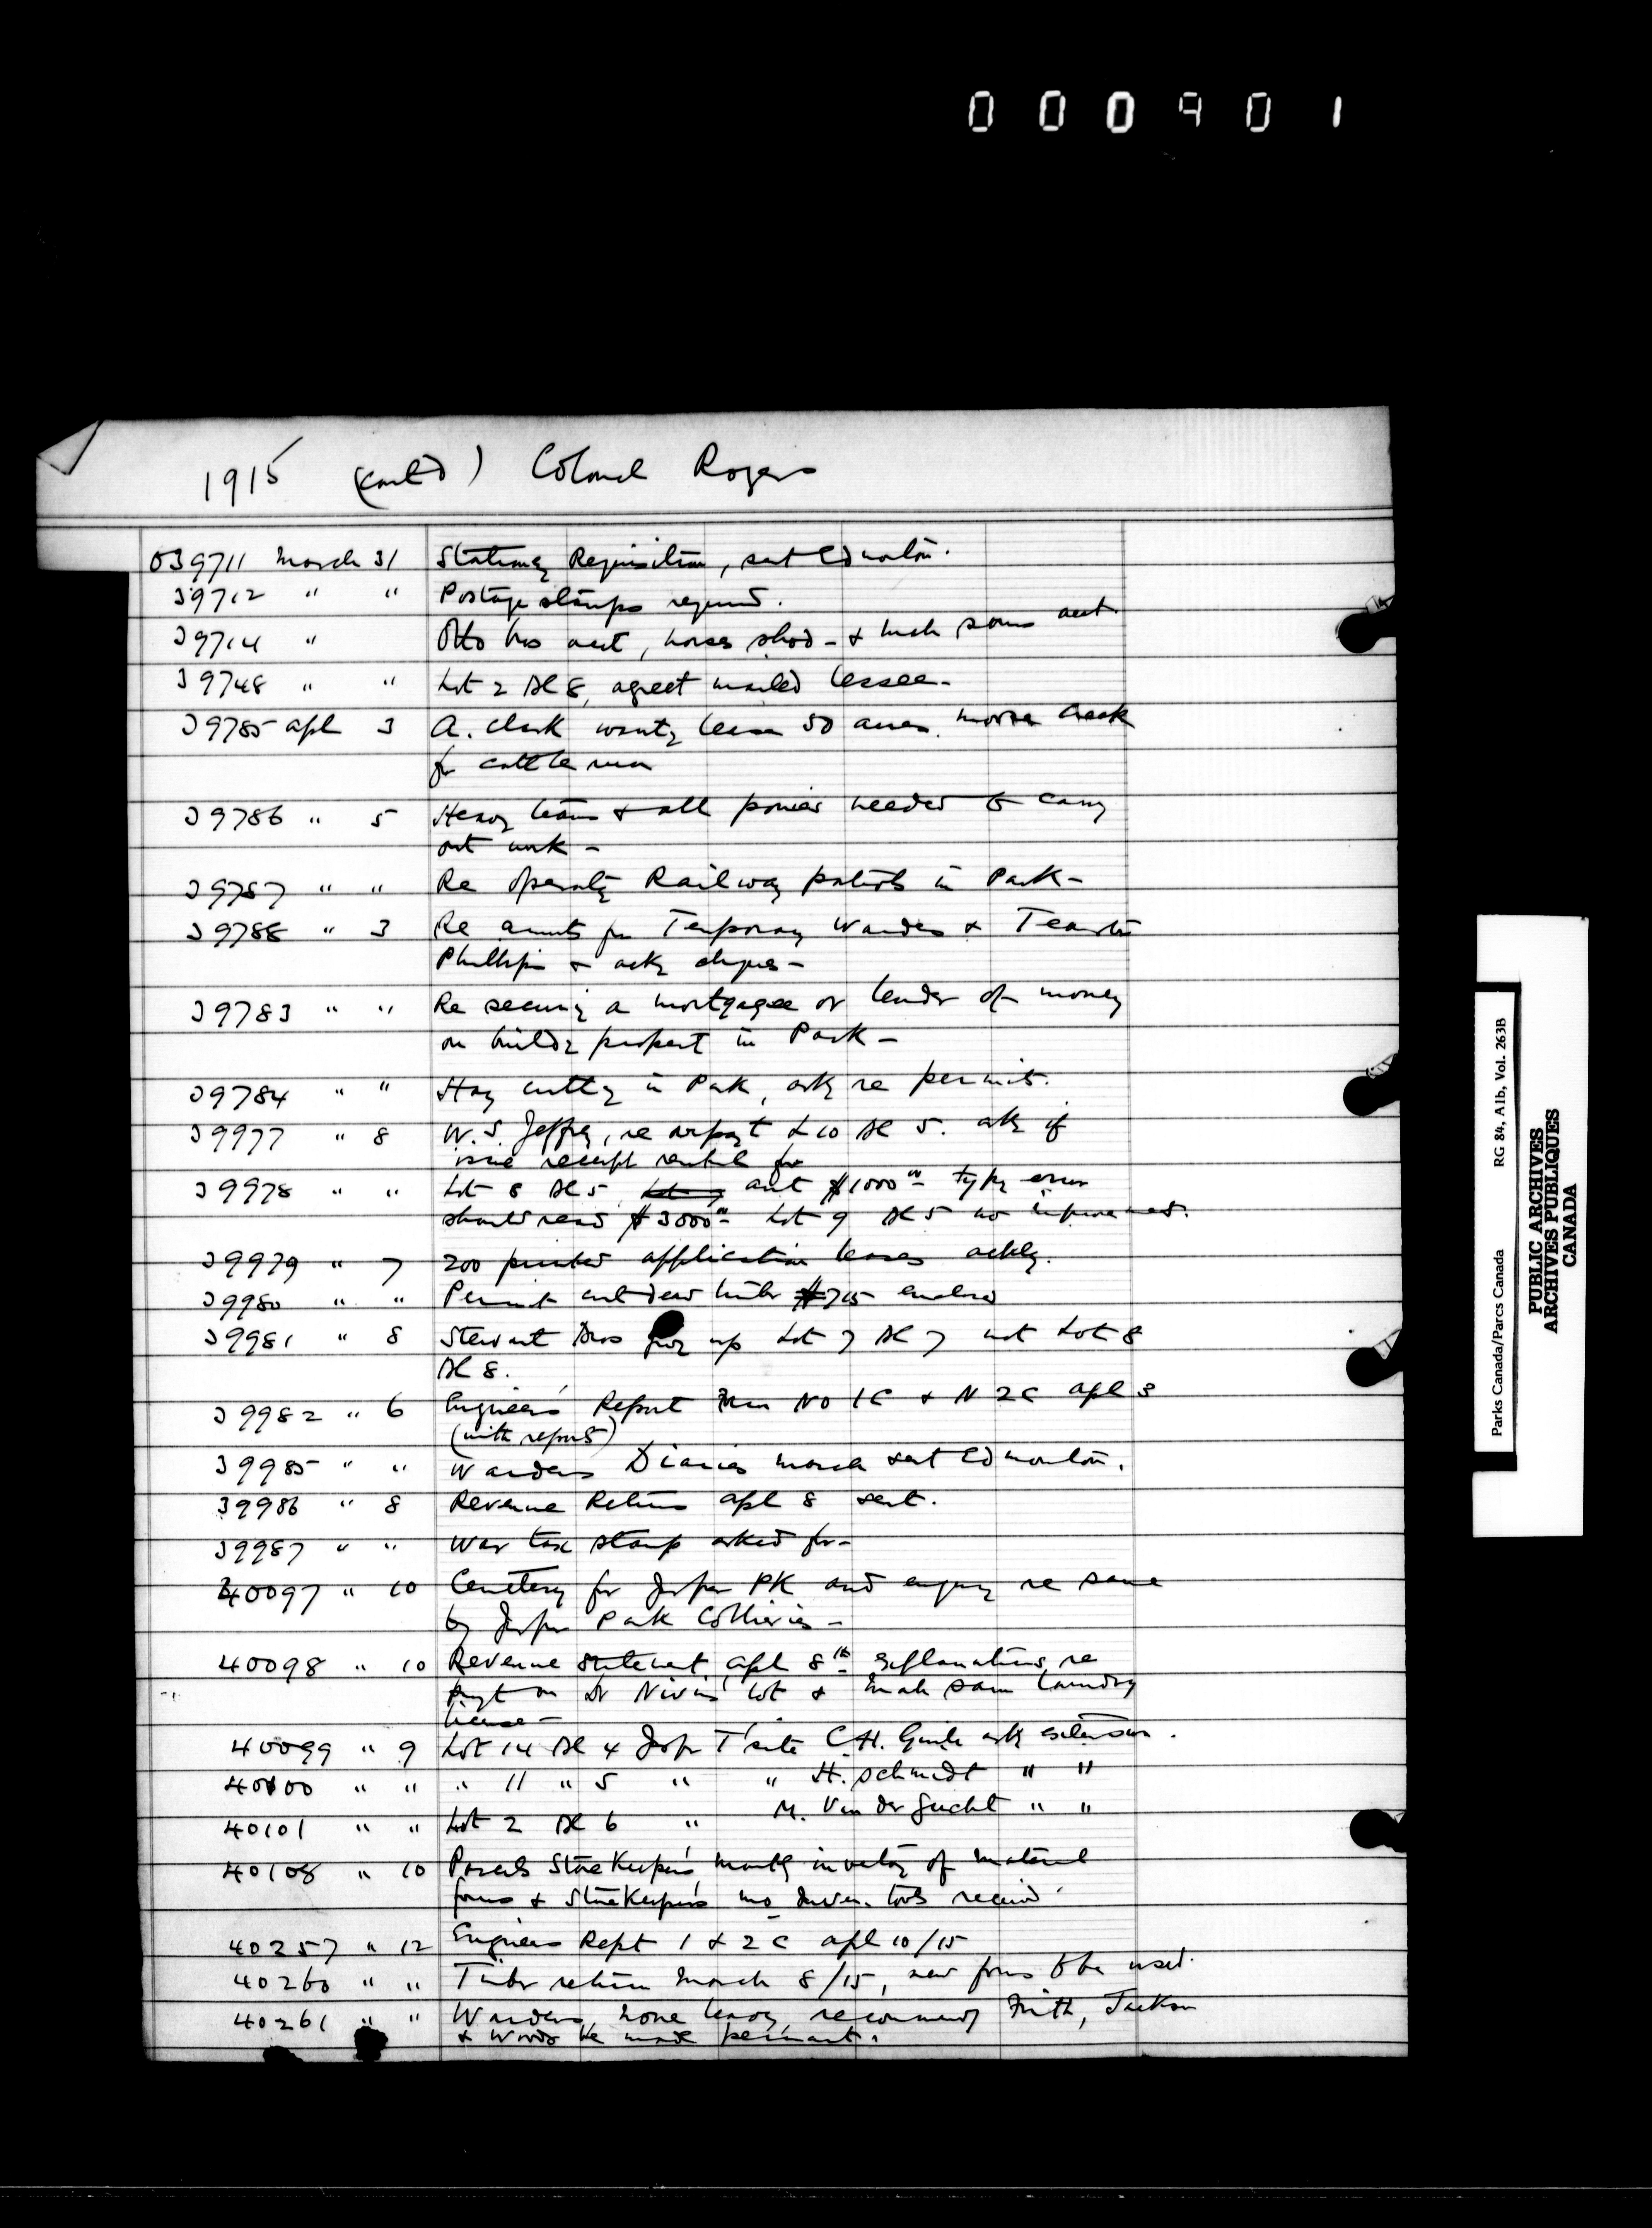 000901
1915 (contd) Colonel Rogers
039711 March 31 Stationery Requisition, sent Edmonton.
39712 " " Postage stamps required.
39714 " Otto Bros acct, horses shod - & acct
39748 " " Lot 2 Bl 8, agreet mailed lessee -
39785 apl 3 A. Clark wants lease 50 acres. Moose Creek
for cattle run
39786 " 5 Heavy team & all ponies needed to carry
out work -
39787 " " Re operatg Railway patrols in Park -
39788 " 3 Re accounts for Temporary Wardens & Teamster
Phillips & askg cheques -
39783 " " Re securing a mortgagee or lender of money
on buildg propert in Park -
39784 " " Hay cuttg in Park, askg re permits.
39977 " 8 W. S. Jeffrey, re L 10 Bl 5. askg if
issue receipt rental for
39978 " " Lot 8 Bl 5 amt $1000 00 typg error
should read $3000 00 Lot 9 Bl 5 no improvements.
39979 " 7 200 printed application leases ackldg.
39980 " " Permit cut dead timber #715 enclosed
39981 " 8 Stewart Bros givg up Lot 7 Bl 7 not Lot 8
Bl 8.
39982 " 6 Engineers' Report No 1C & N 2C apl 3
(with report)
39985 " " Wardens Diaries March sent Edmonton.
39986 " 8 Revenue Returns apl 8 sent.
39987 " " War tax stamp asked for -
40097 " 10 Cemetery for Jasper PK and enquiry re same
by Jasper Park Collieries -
40098 " 10 Revenue Statement apl 8th explanations re
payt on Dr Nivins' lot & laundry
license -
40099 " 9 Lot 14 Bl 4 Jasper T'site C.H. askg extension.
40100 " " " 11 " 5 " " H. Schmidt " "
40101 " " Lot 2 Bl 6 " M. Van der Gucht " "
40108 " 10 Parcels StoreKeeper's monthly inventory of material
forms & StoreKeepers mo inven. tools received
40257 " 12 Engineers Rept 1 & 2 C apl 10/15
40260 " " Timber return March 8/15, new forms to be used.
40261 " " Wardens, none leavg, recommends Frith, Jackson
& Woods be made permant.
Parks Canada/Parcs Canada RG 84, A1b, Vol. 263B
PUBLIC ARCHIVES
ARCHIVES PUBLIQUES
CANADA